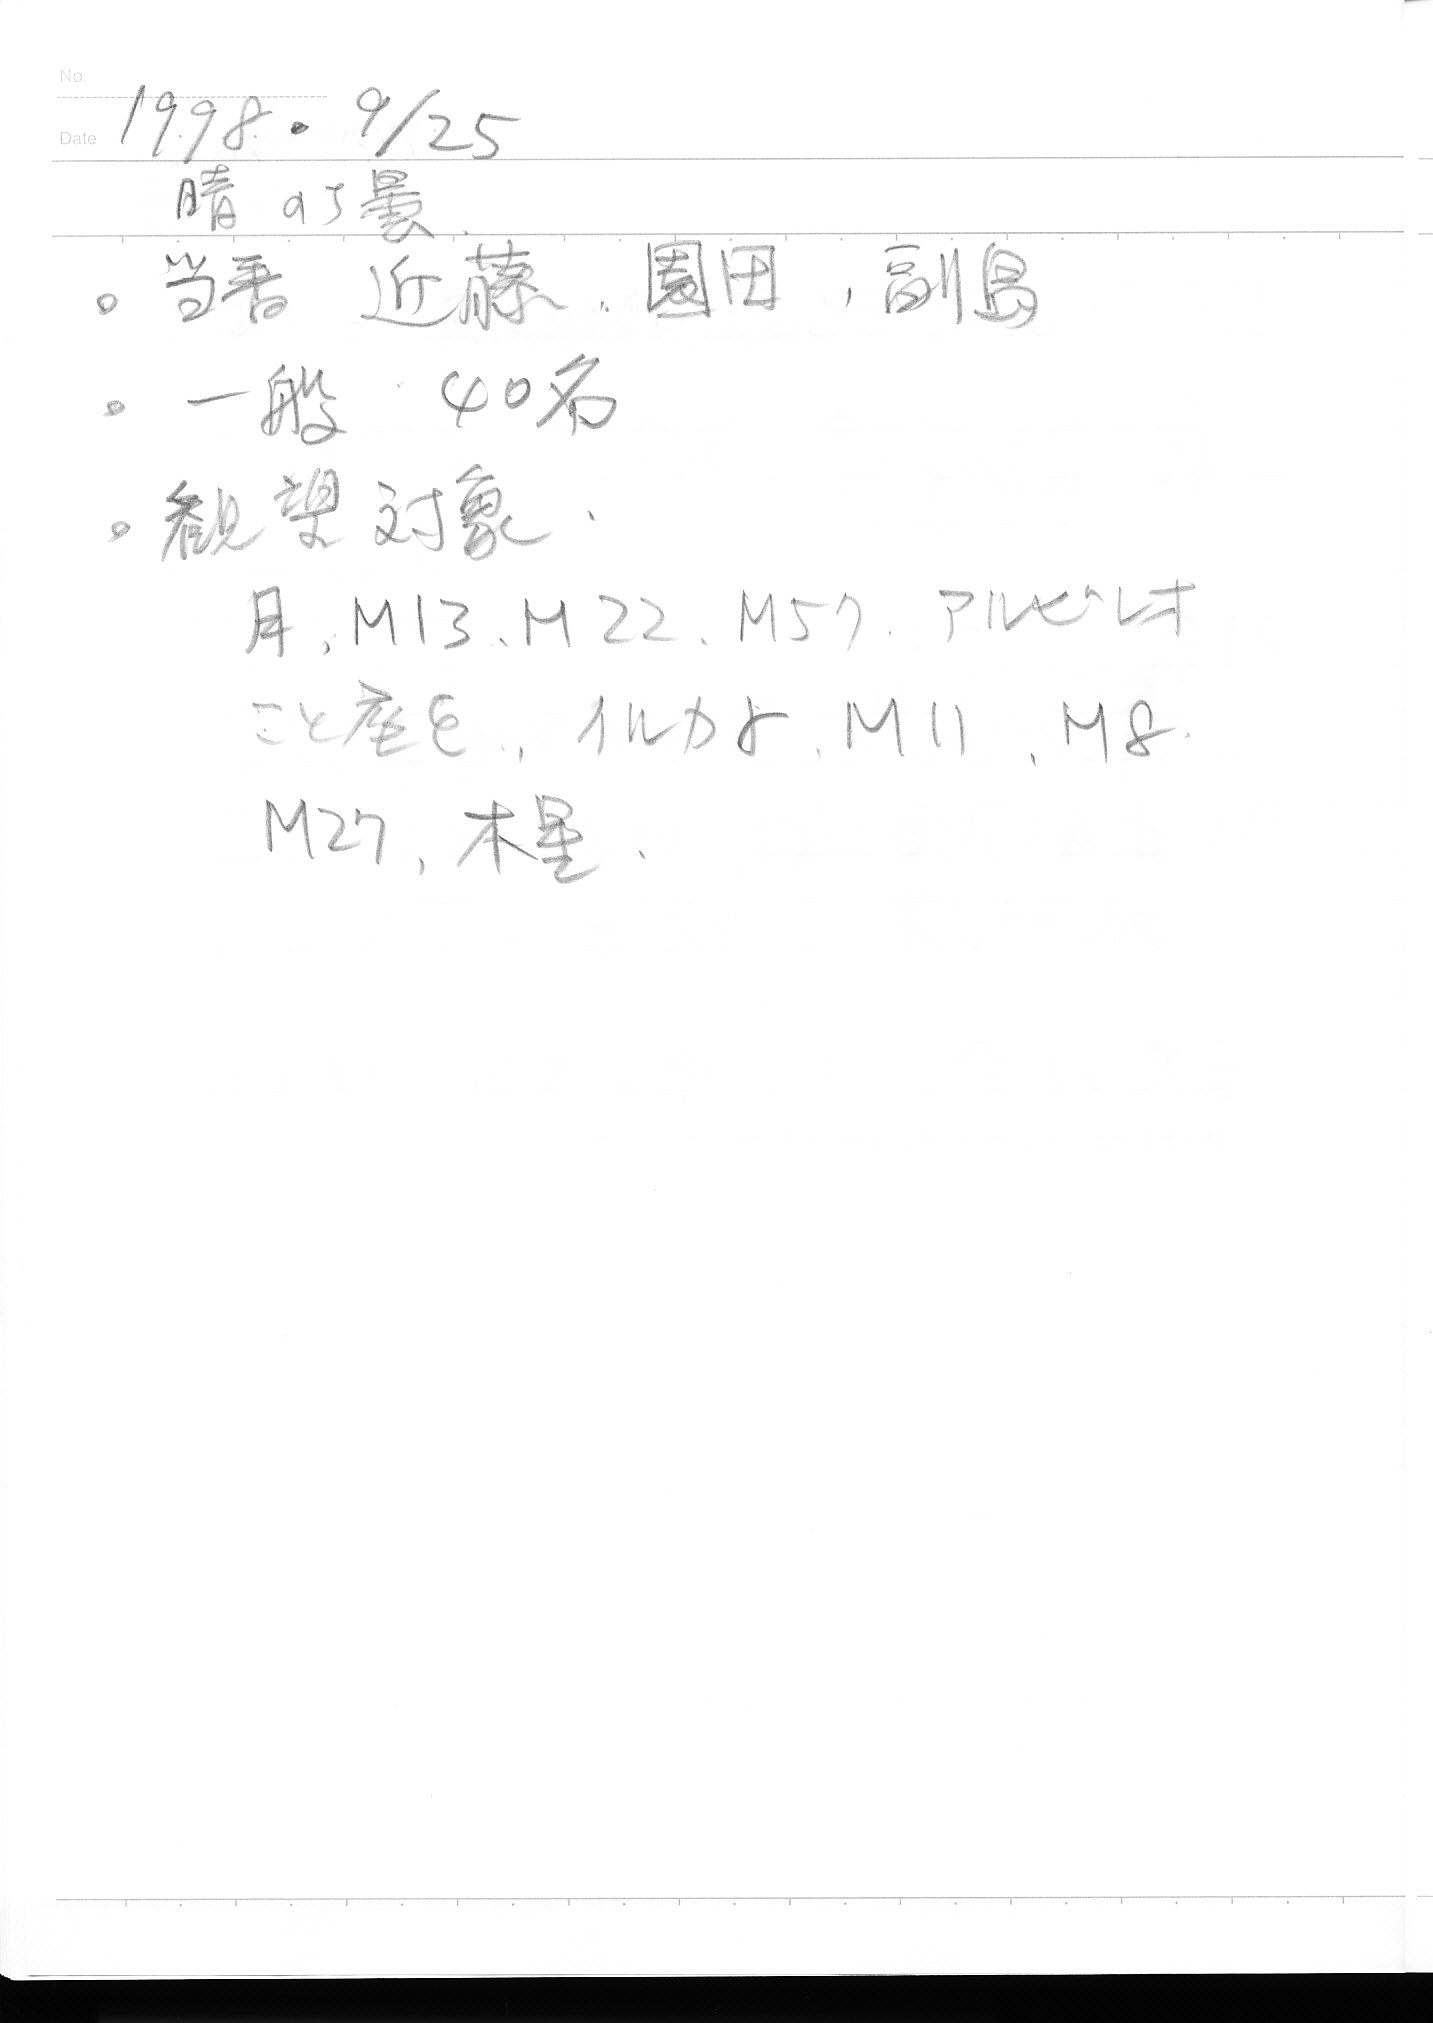 No.
Date 1998. 9/25
晴のち曇
。当番 近藤、園田、副島
。一般 40名
。観望対象
月、M13、M22、M57、アルビレオ
こと座ε、イルカγ、M11、M8
M27、木星、